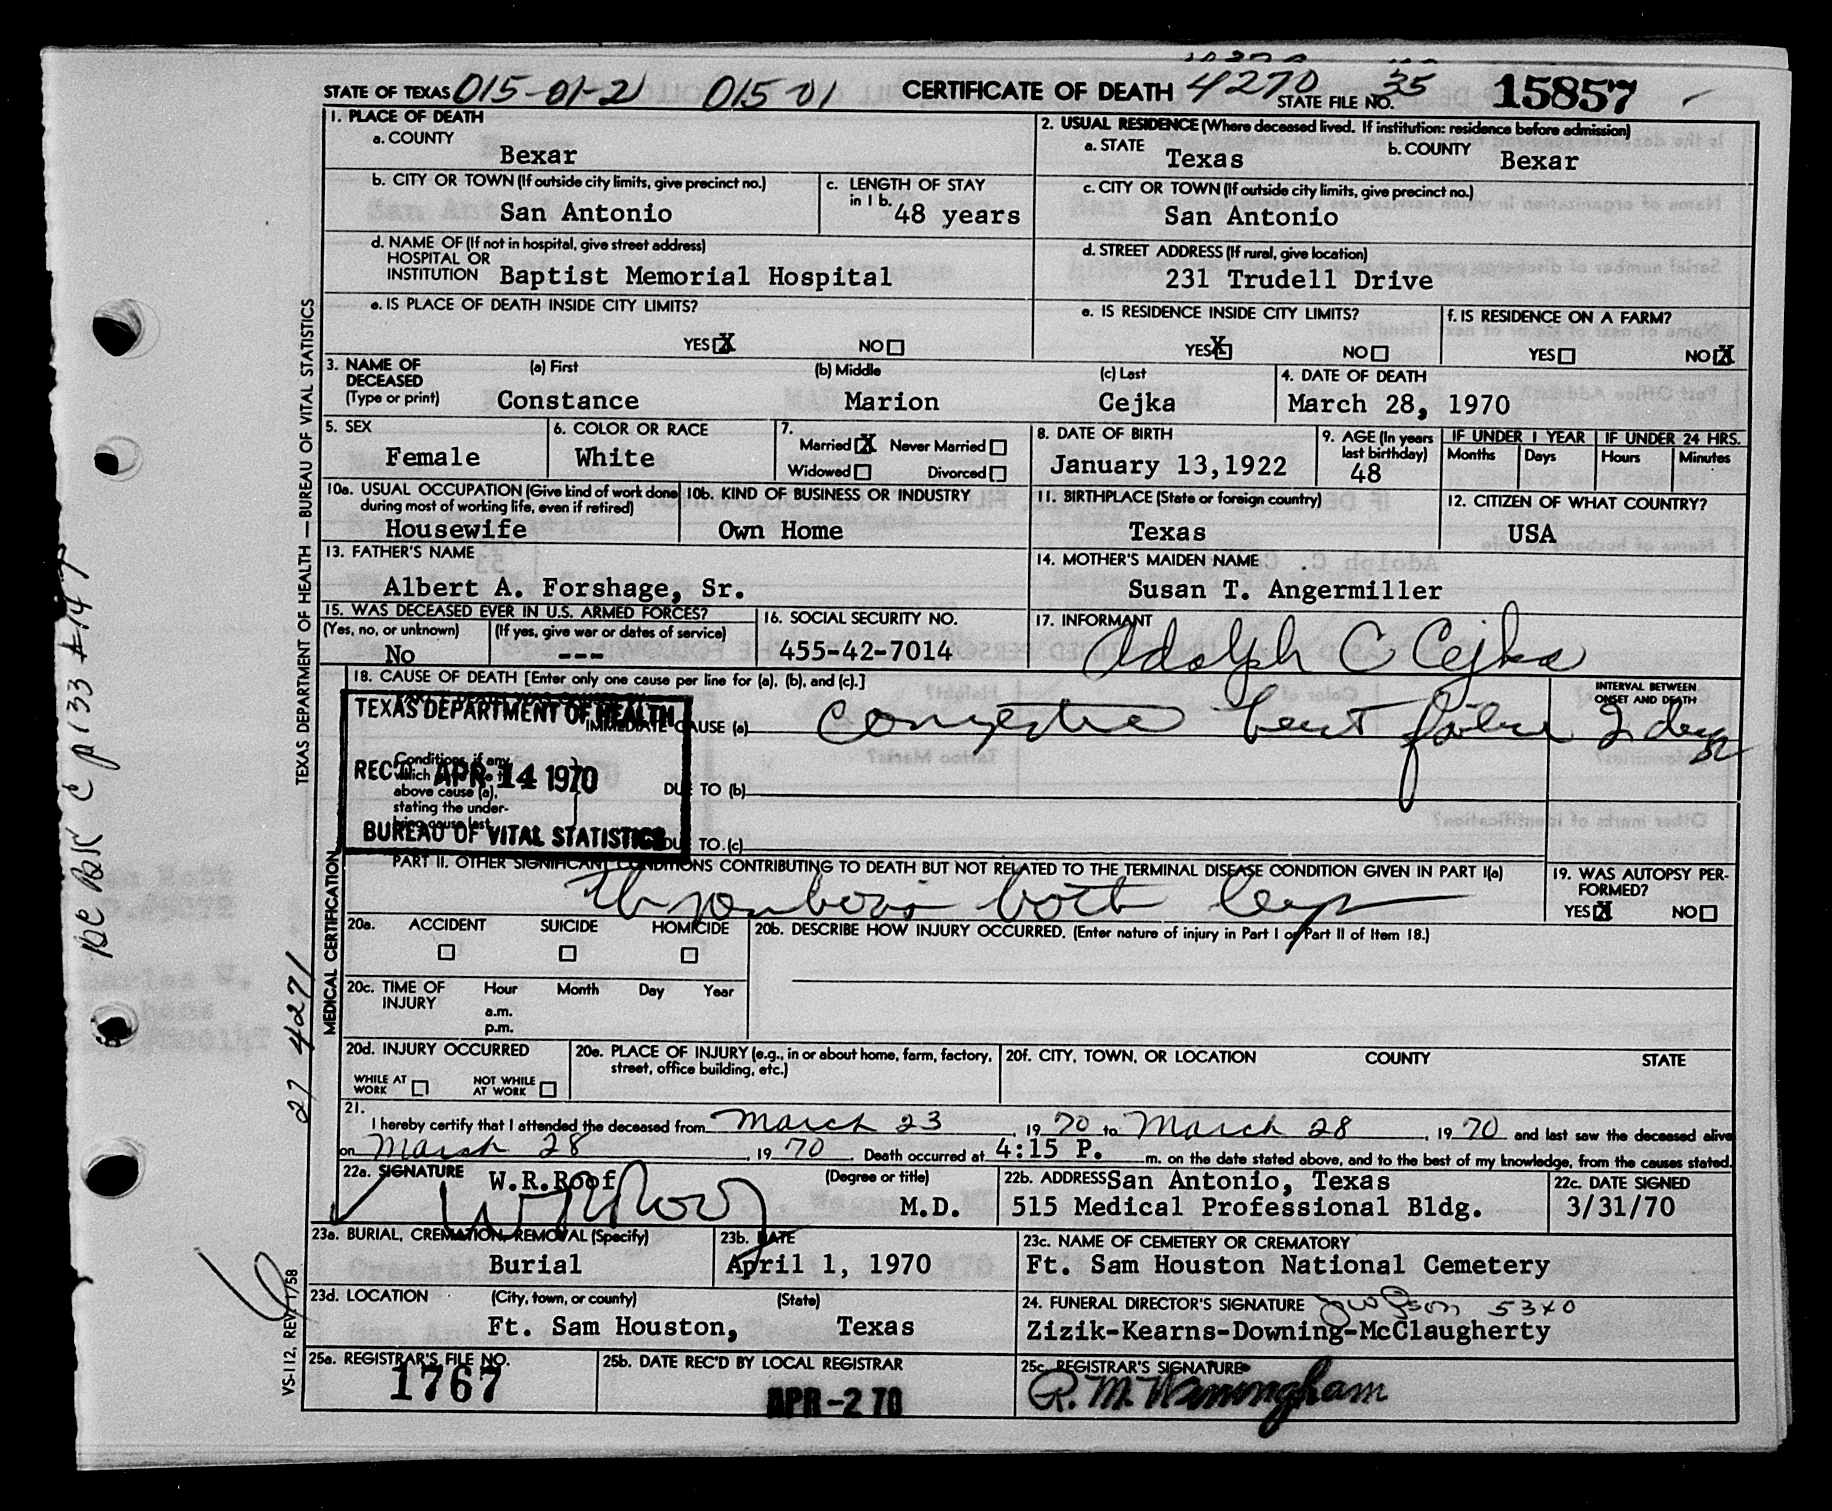 STATE OF TEXAS 015-01-2 015-01 CERTIFICATE OF DEATH 4270 35 STATE FILE NO. 15857
1. PLACE OF DEATH
a. COUNTY
Bexar
2. USUAL RESIDENCE (Where deceased lived. If institution: residence before admission)
a. STATE Texas b. COUNTY Bexar
b. CITY OR TOWN (If outside city limits, give precinct no.)
San Antonio
c. LENGTH OF STAY
in 1 b. 48 years
c. CITY OR TOWN (If outside city limits, give precinct no.)
San Antonio
d. NAME OF (If not in hospital, give street address)
HOSPITAL OR
INSTITUTION Baptist Memorial Hospital
d. STREET ADDRESS (If rural, give location)
231 Trudell Drive
e. IS PLACE OF DEATH INSIDE CITY LIMITS?
YES X NO
e. IS RESIDENCE INSIDE CITY LIMITS?
YES X NO
f. IS RESIDENCE ON A FARM?
YES NO X
3. NAME OF
DECEASED
(Type or print)
(a) First (b) Middle (c) Last
Constance Marion Cejka
4. DATE OF DEATH
March 28, 1970
5. SEX
Female
6. COLOR OR RACE
White
7.
Married X Never Married
Widowed Divorced
8. DATE OF BIRTH
January 13,1922
9. AGE (In years
last birthday)
48
IF UNDER 1 YEAR IF UNDER 24 HRS.
Months Days Hours Minutes
10a. USUAL OCCUPATION (Give kind of work done
during most of working life, even if retired)
Housewife
10b. KIND OF BUSINESS OR INDUSTRY
Own Home
11. BIRTHPLACE (State or foreign country)
Texas
12. CITIZEN OF WHAT COUNTRY?
USA
13. FATHER'S NAME
Albert A. Forshage, Sr.
14. MOTHER'S MAIDEN NAME
Susan T. Angermiller
15. WAS DECEASED EVER IN U.S. ARMED FORCES?
(Yes, no, or unknown) (If yes, give war or dates of service)
No ---
16. SOCIAL SECURITY NO.
455-42-7014
17. INFORMANT
Adolph C Cejka
18. CAUSE OF DEATH [Enter only one cause per line for (a), (b), and (c).]
INTERVAL BETWEEN
ONSET AND DEATH
IMMEDIATE CAUSE (a) Congestive heart failure 2 days
Conditions, if any,
which
above cause (a),
stating the under-
lying cause last.
DUE TO (b)
DUE TO (c)
TEXAS DEPARTMENT OF HEALTH
REC'D APR 14 1970
BUREAU OF VITAL STATISTICS
PART II. OTHER SIGNIFICANT CONDITIONS CONTRIBUTING TO DEATH BUT NOT RELATED TO THE TERMINAL DISEASE CONDITION GIVEN IN PART I(a)
Thrombosis both legs
19. WAS AUTOPSY PER-
FORMED?
YES X NO
20a. ACCIDENT SUICIDE HOMICIDE
20b. DESCRIBE HOW INJURY OCCURRED. (Enter nature of injury in Part I or Part II of Item 18.)
20c. TIME OF
INJURY
Hour Month Day Year
a.m.
p.m.
20d. INJURY OCCURRED
WHILE AT
WORK
NOT WHILE
AT WORK
20e. PLACE OF INJURY (e.g., in or about home, farm, factory,
street, office building, etc.)
20f. CITY, TOWN, OR LOCATION COUNTY STATE
21.
I hereby certify that I attended the deceased from March 23, 1970 to March 28, 1970 and last saw the deceased alive
on March 28, 1970. Death occurred at 4:15 P. m. on the date stated above, and to the best of my knowledge, from the causes stated.
22a. SIGNATURE W.R.Roof (Degree or title)
M.D.
22b. ADDRESS San Antonio, Texas
515 Medical Professional Bldg.
22c. DATE SIGNED
3/31/70
23a. BURIAL, CREMATION, REMOVAL (Specify)
Burial
23b. DATE
April 1, 1970
23c. NAME OF CEMETERY OR CREMATORY
Ft. Sam Houston National Cemetery
23d. LOCATION (City, town, or county) (State)
Ft. Sam Houston, Texas
24. FUNERAL DIRECTOR'S SIGNATURE 5340
Zizik-Kearns-Downing-McClaugherty
25a. REGISTRAR'S FILE NO.
1767
25b. DATE REC'D BY LOCAL REGISTRAR
APR -2 70
25c. REGISTRAR'S SIGNATURE
TEXAS DEPARTMENT OF HEALTH — BUREAU OF VITAL STATISTICS
MEDICAL CERTIFICATION
VS-112, REV. 1/58
27 4271
p 133 #147